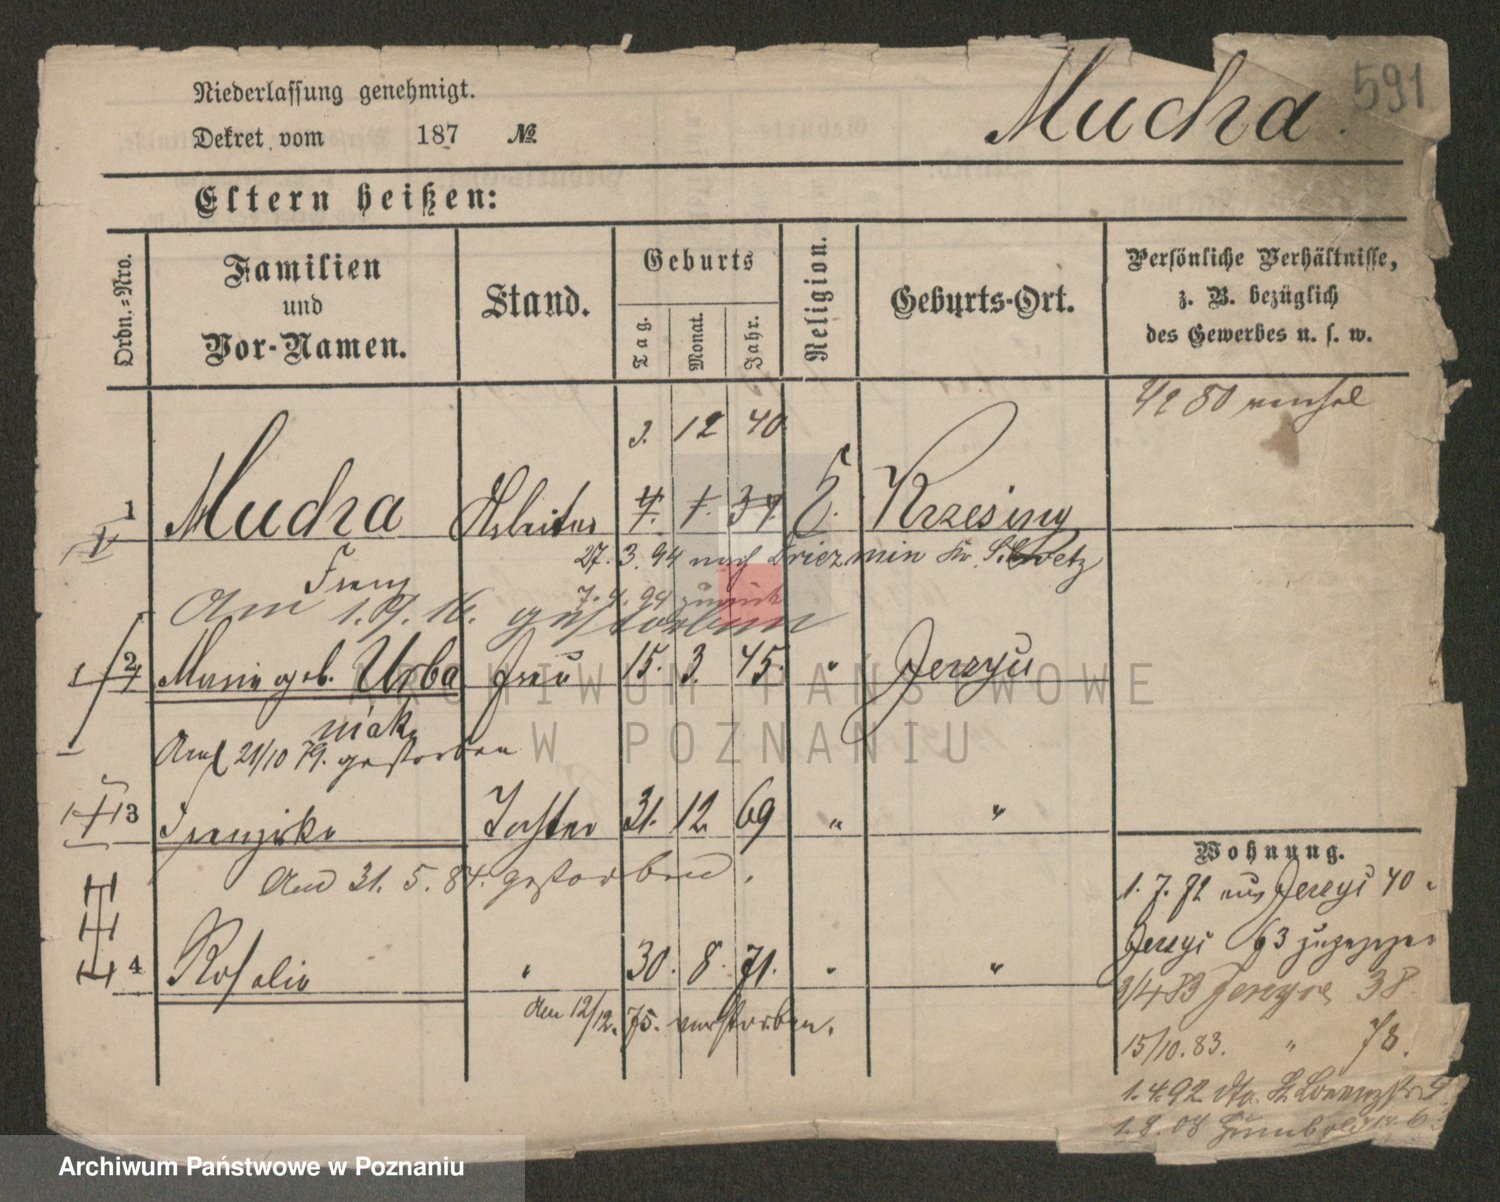 591
Niederlassung genehmigt.
Mucha.
Dekret vom 187 №
Eltern heißen:
Ordn.=Nro.
Familien
und
Vor-Namen.
Stand.
Geburts
Tag.
Monat.
Jahr.
Religion.
Geburts-Ort.
Persönliche Verhältnisse,
z. B. bezüglich
des Gewerbes u. s. w.
12 40
1 Mucha Arbeiter 4. 1. 37. Krzesiny
27. 3. 94 nach Kr. Schwetz
Franz
7. 4. 94 zurück
Am 1. 16. gestorben
2 Marie geb. Urba Frau 15. 3. 45. " Jerzyce
niak
Am 21/10 79. gestorben
3 Franziska Tochter 31. 12. 69 " "
Am 31. 5. 84. gestorben.
4 Rosalie " 30. 8. 71. " "
Am 12/12. 75. verstorben.
Wohnung.
1. 7. 72 aus Jerzyce 40
Jerzyce 63 zugezogen
3/4 83 Jerzyce 38
15/10. 83. " 78.
1. 4. 92 dto.
1. 8. 08
ARCHIWUM PAŃSTWOWE
W POZNANIU
Archiwum Państwowe w Poznaniu